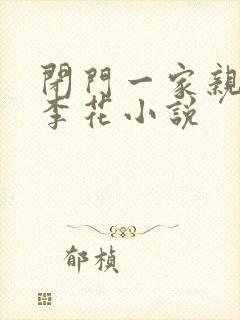 閉門一家親
李花小說
郁楨